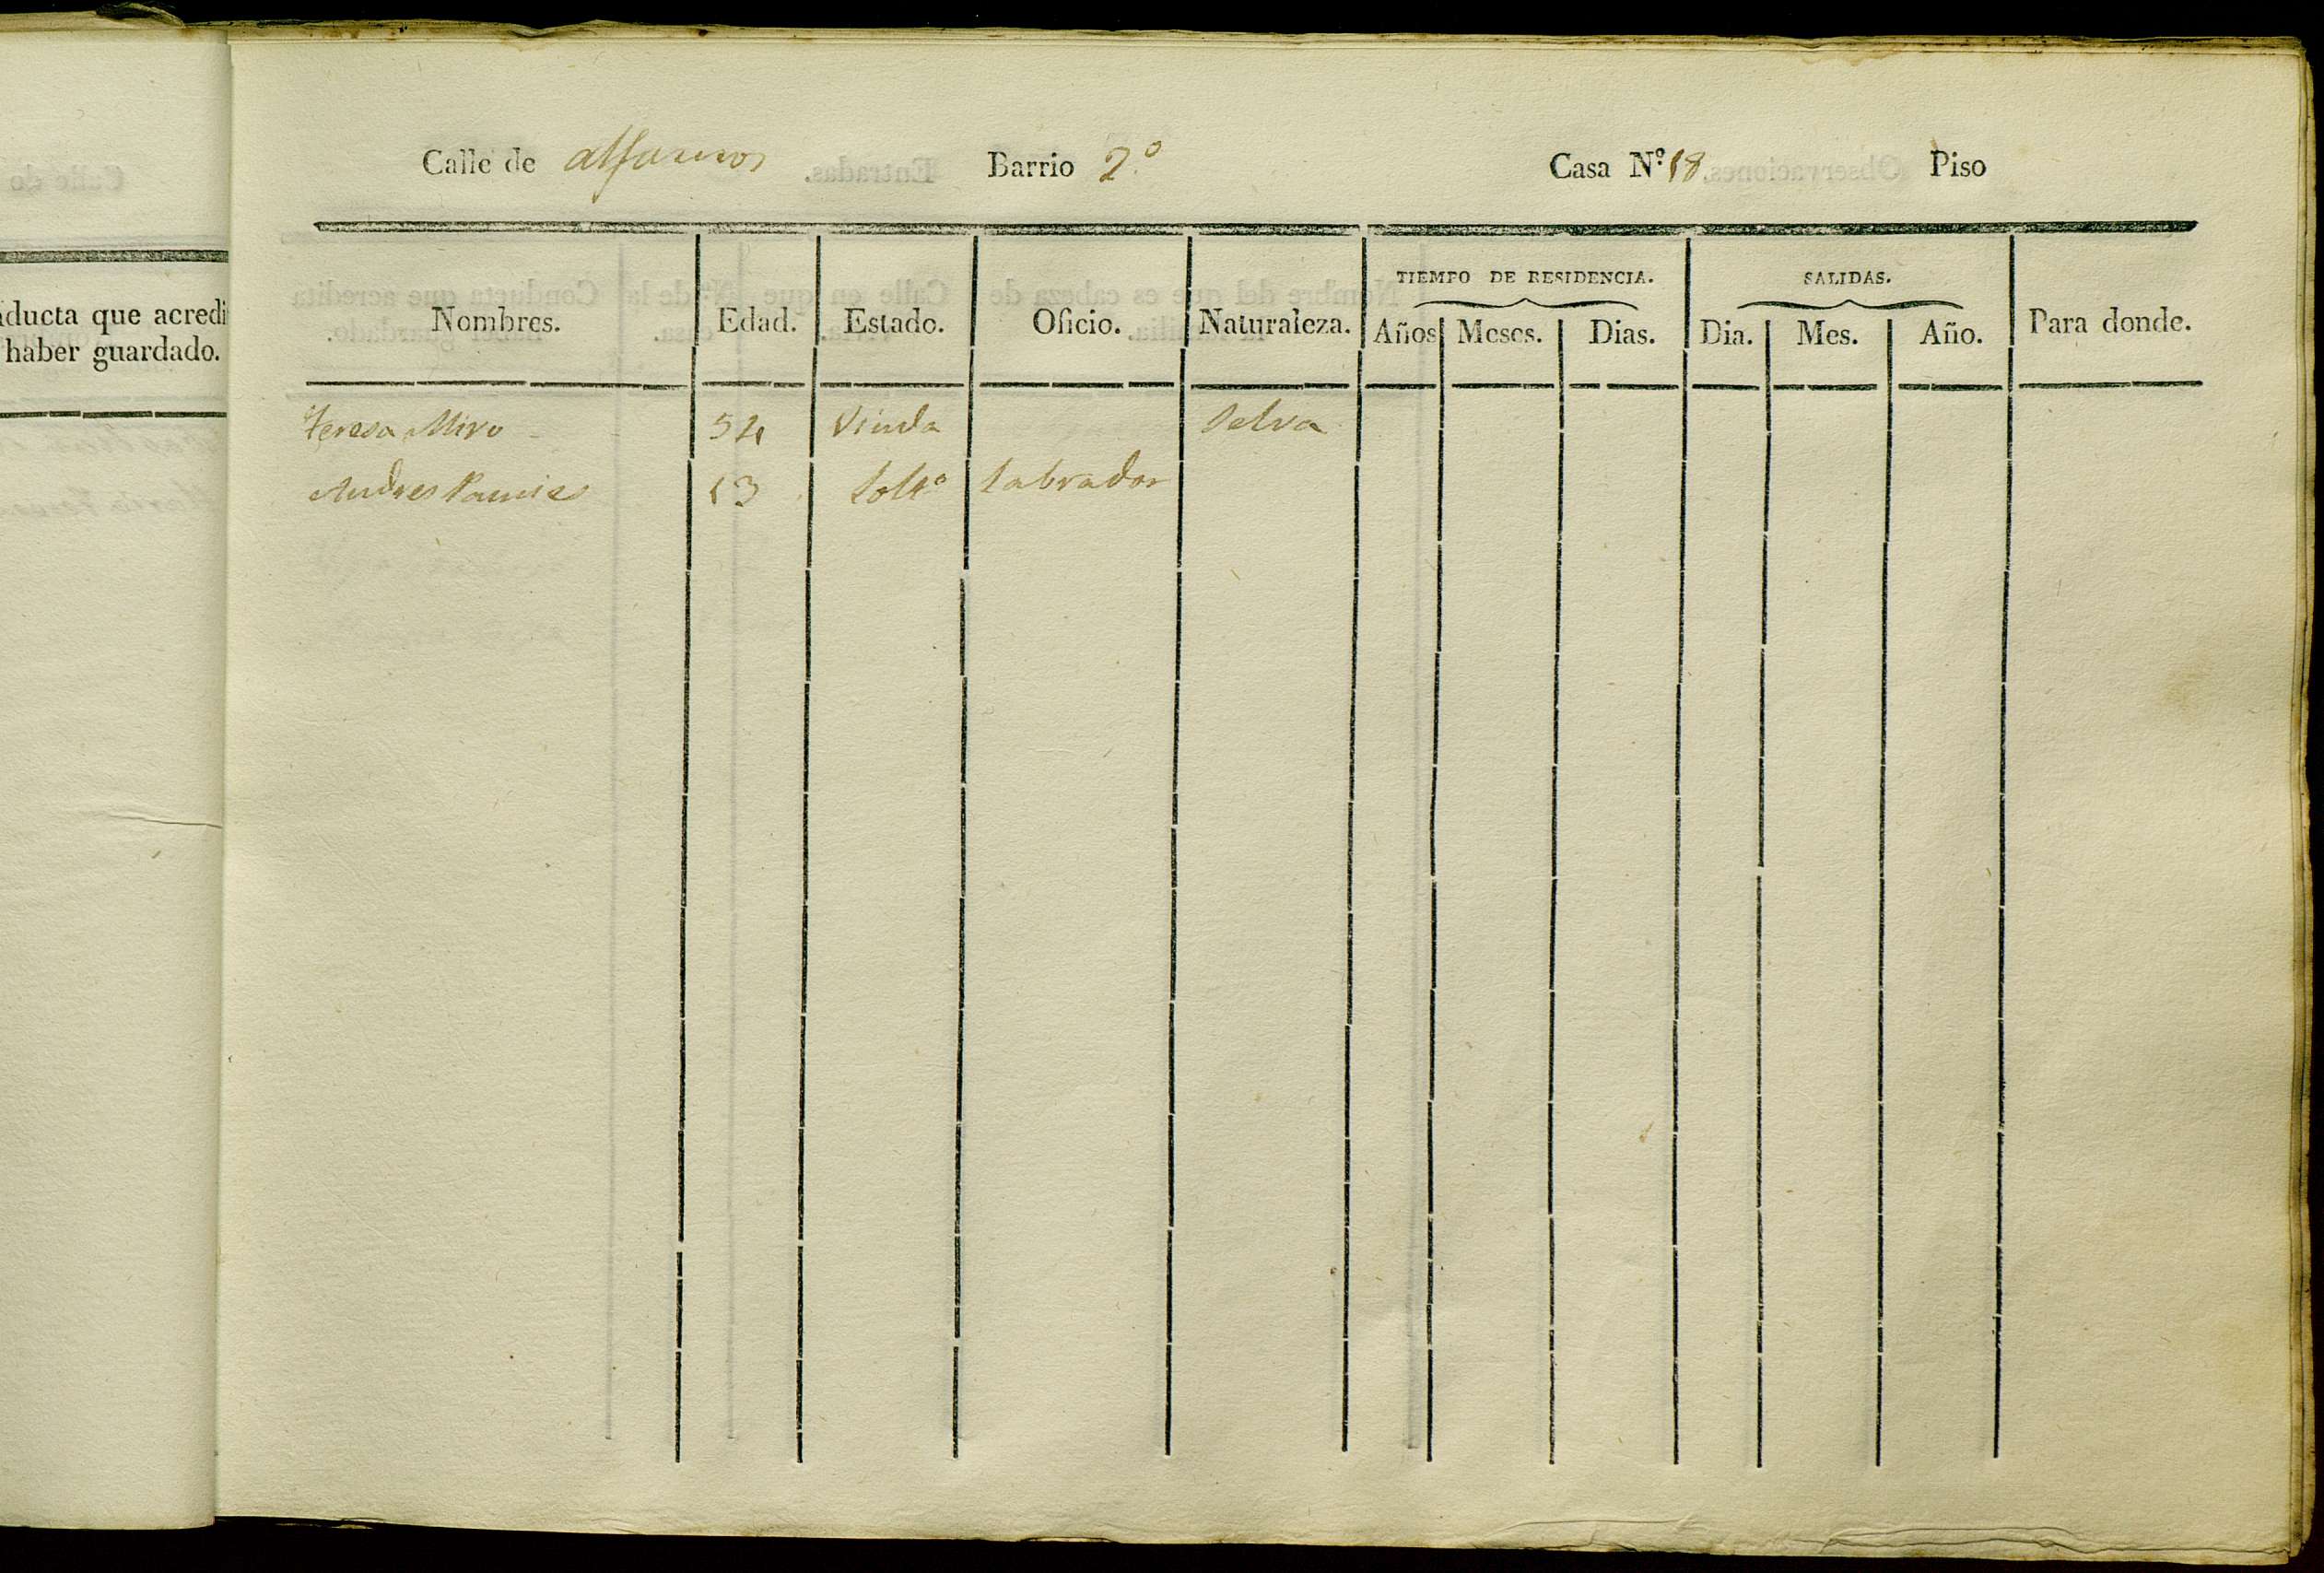 ducta que acredi
haber guardado.
Calle de alfareros Barrio 2.º Casa N.º 18 Piso
TIEMPO DE RESIDENCIA. SALIDAS.
Nombres. Edad. Estado. Oficio. Naturaleza. Años Meses. Dias. Dia. Mes. Año. Para donde.
Teresa Miro 54 Viuda Selva
Andres Pamies 13 Solt.º Labrador